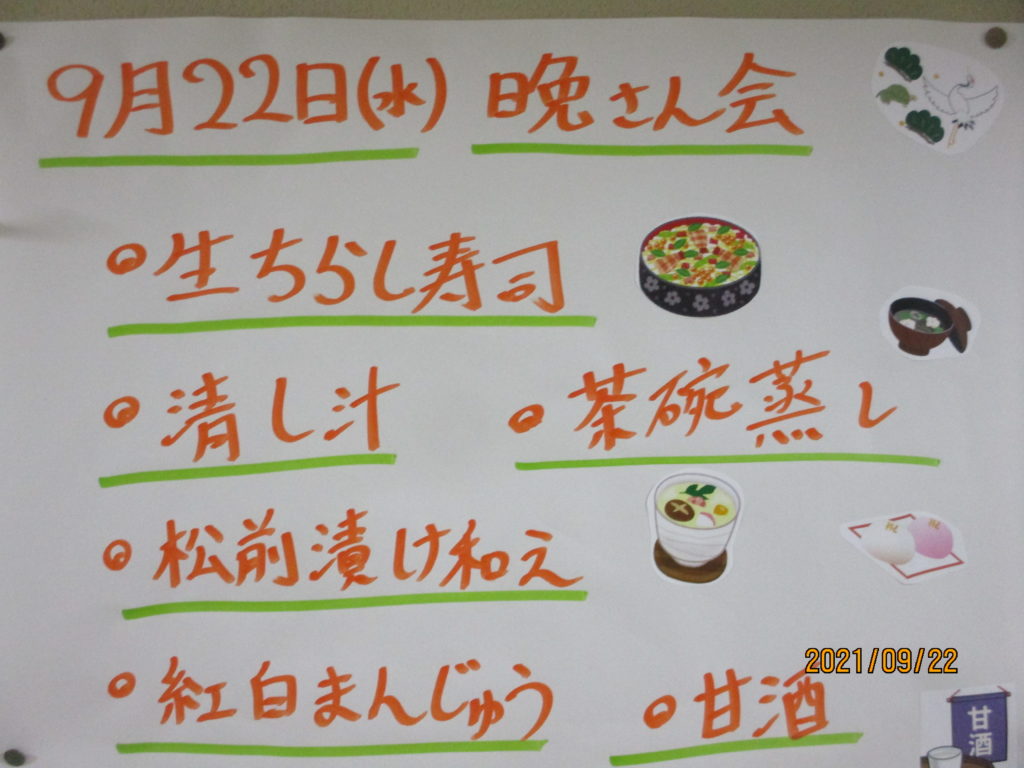 9月22日(水) 晩さん会
生ちらし寿司
清し汁 茶碗蒸し
松前漬け和え
祝 祝
紅白まんじゅう 甘酒
2021/09/22
甘酒